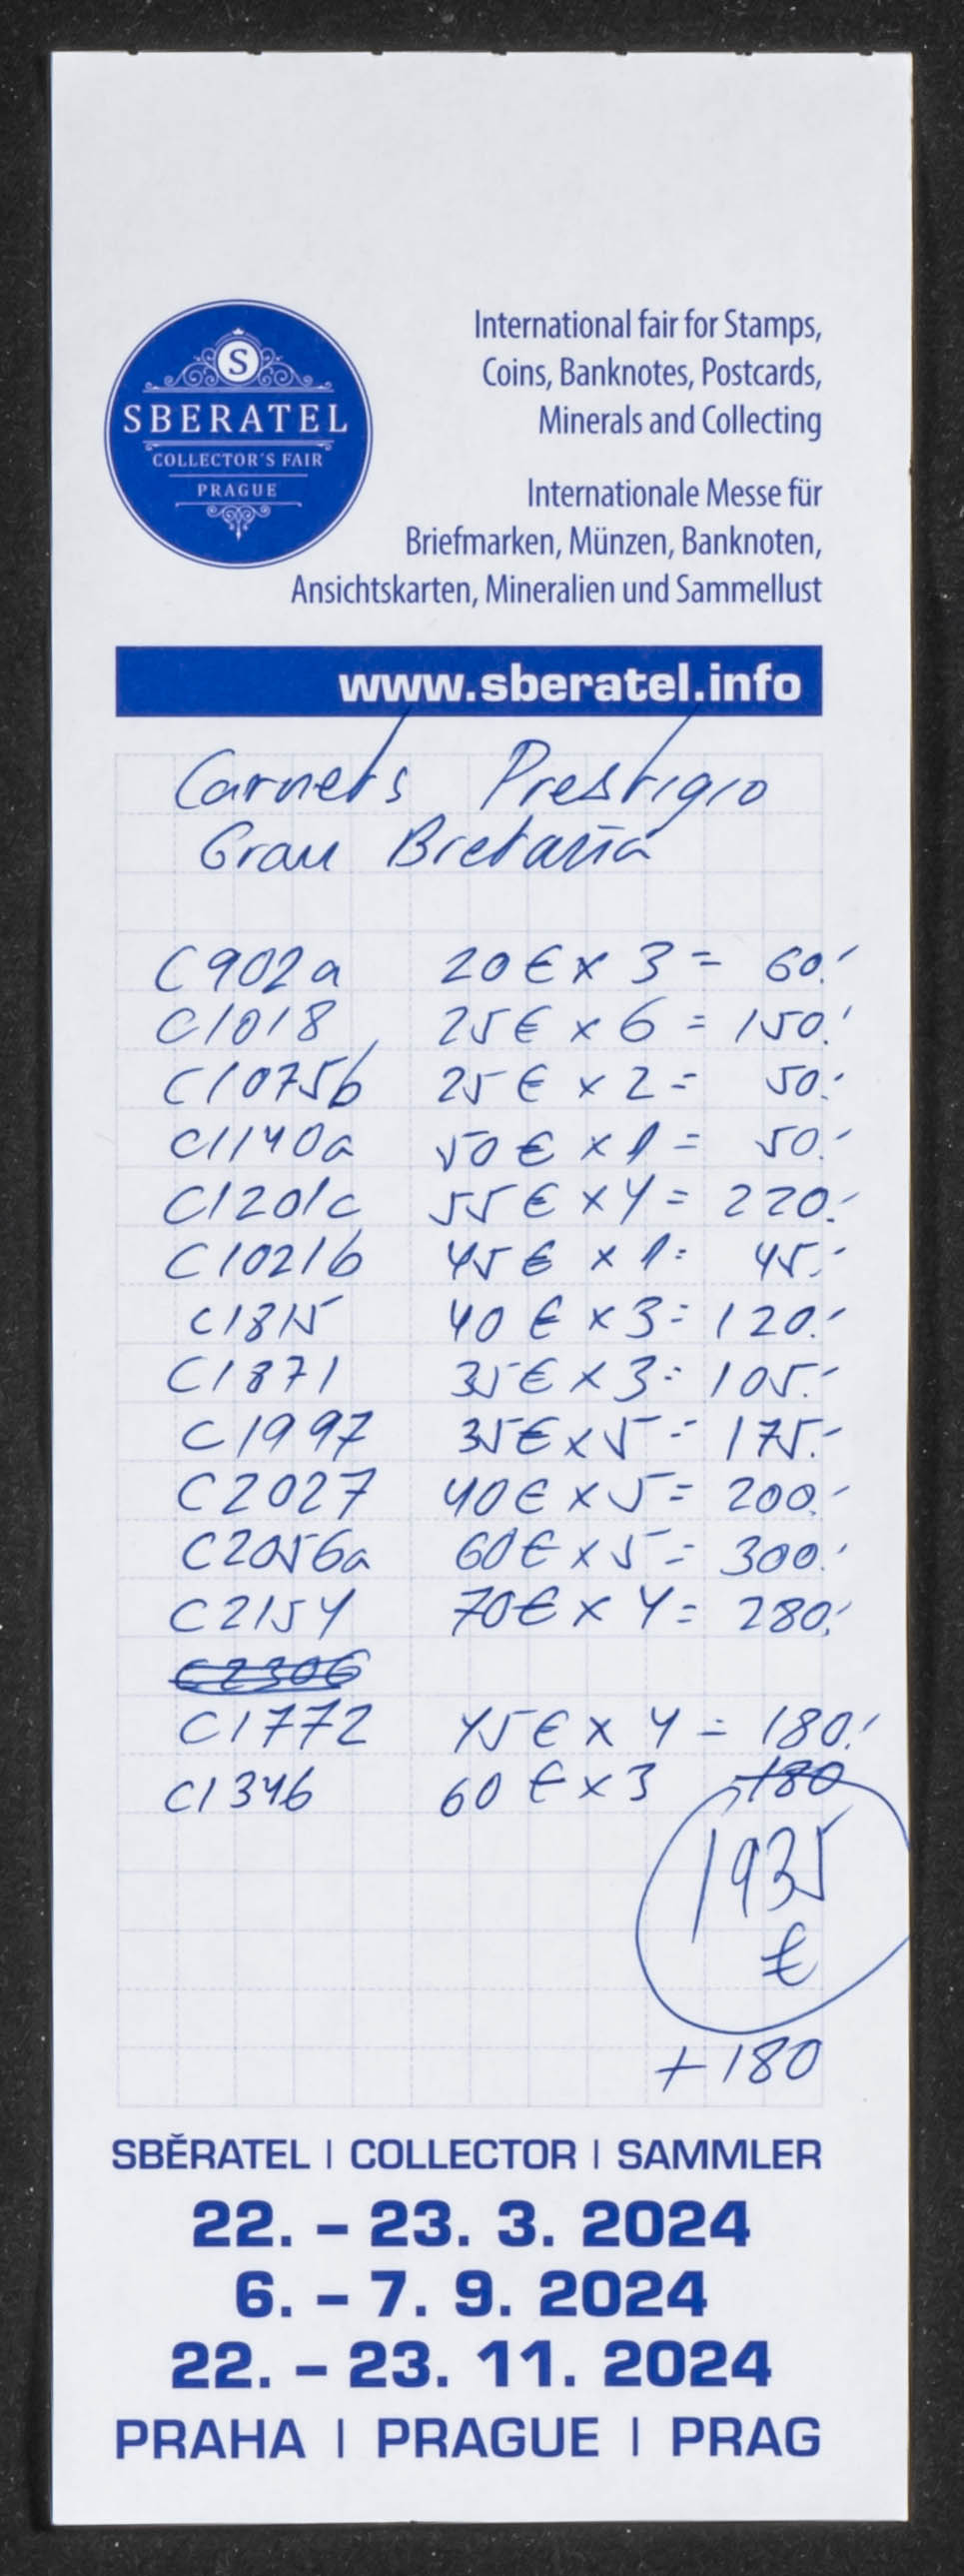 S
SBERATEL
COLLECTOR'S FAIR
PRAGUE
International fair for Stamps,
Coins, Banknotes, Postcards,
Minerals and Collecting
Internationale Messe für
Briefmarken, Münzen, Banknoten,
Ansichtskarten, Mineralien und Sammellust
www.sberatel.info
Carnets Prestigio
Gran Bretaña
C902a 20€ x 3 = 60.-
C1018 25€ x 6 = 150.-
C1075b 25€ x 2 = 50.-
C1140a 50€ x 1 = 50.-
C1201c 55€ x 4 = 220.-
C1021b 45€ x 1 = 45.-
C1815 40€ x 3 = 120.-
C1871 35€ x 3 = 105.-
C1997 35€ x 5 = 175.-
C2027 40€ x 5 = 200.-
C2056a 60€ x 5 = 300.-
C2154 70€ x 4 = 280.-
C2306
C1772 45€ x 4 = 180.-
C1346 60€ x 3 180
1935
€
+180
SBĚRATEL | COLLECTOR | SAMMLER
22. – 23. 3. 2024
6. – 7. 9. 2024
22. – 23. 11. 2024
PRAHA | PRAGUE | PRAG